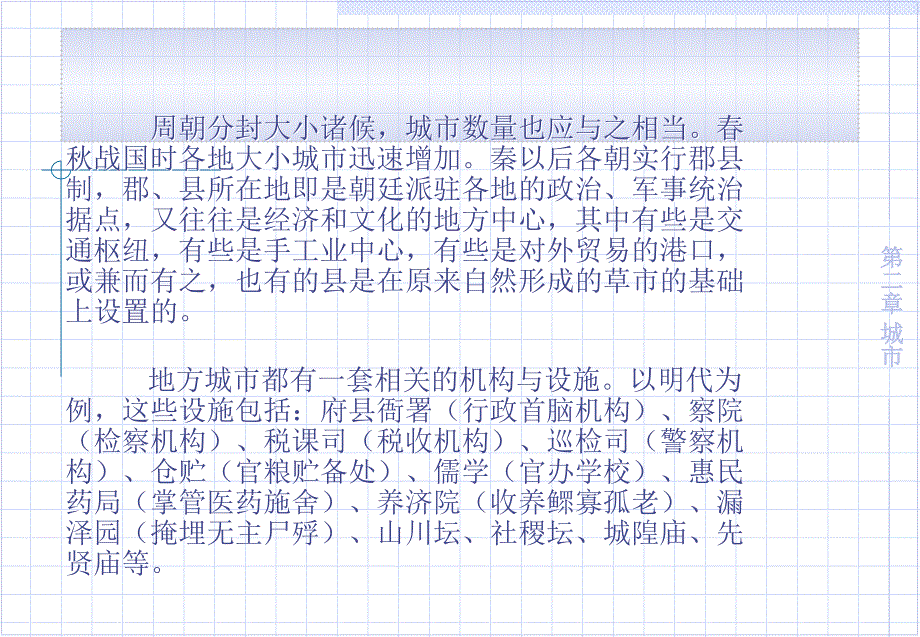 周朝分封大小诸候，城市数量也应与之相当。春
秋战国时各地大小城市迅速增加。秦以后各朝实行郡县
制，郡、县所在地即是朝廷派驻各地的政治、军事统治
据点，又往往是经济和文化的地方中心，其中有些是交
通枢纽，有些是手工业中心，有些是对外贸易的港口，
或兼而有之，也有的县是在原来自然形成的草市的基础
上设置的。
地方城市都有一套相关的机构与设施。以明代为
例，这些设施包括：府县衙署（行政首脑机构）、察院
（检察机构）、税课司（税收机构）、巡检司（警察机
构）、仓贮（官粮贮备处）、儒学（官办学校）、惠民
药局（掌管医药施舍）、养济院（收养鳏寡孤老）、漏
泽园（掩埋无主尸殍）、山川坛、社稷坛、城隍庙、先
贤庙等。
第二章 城市